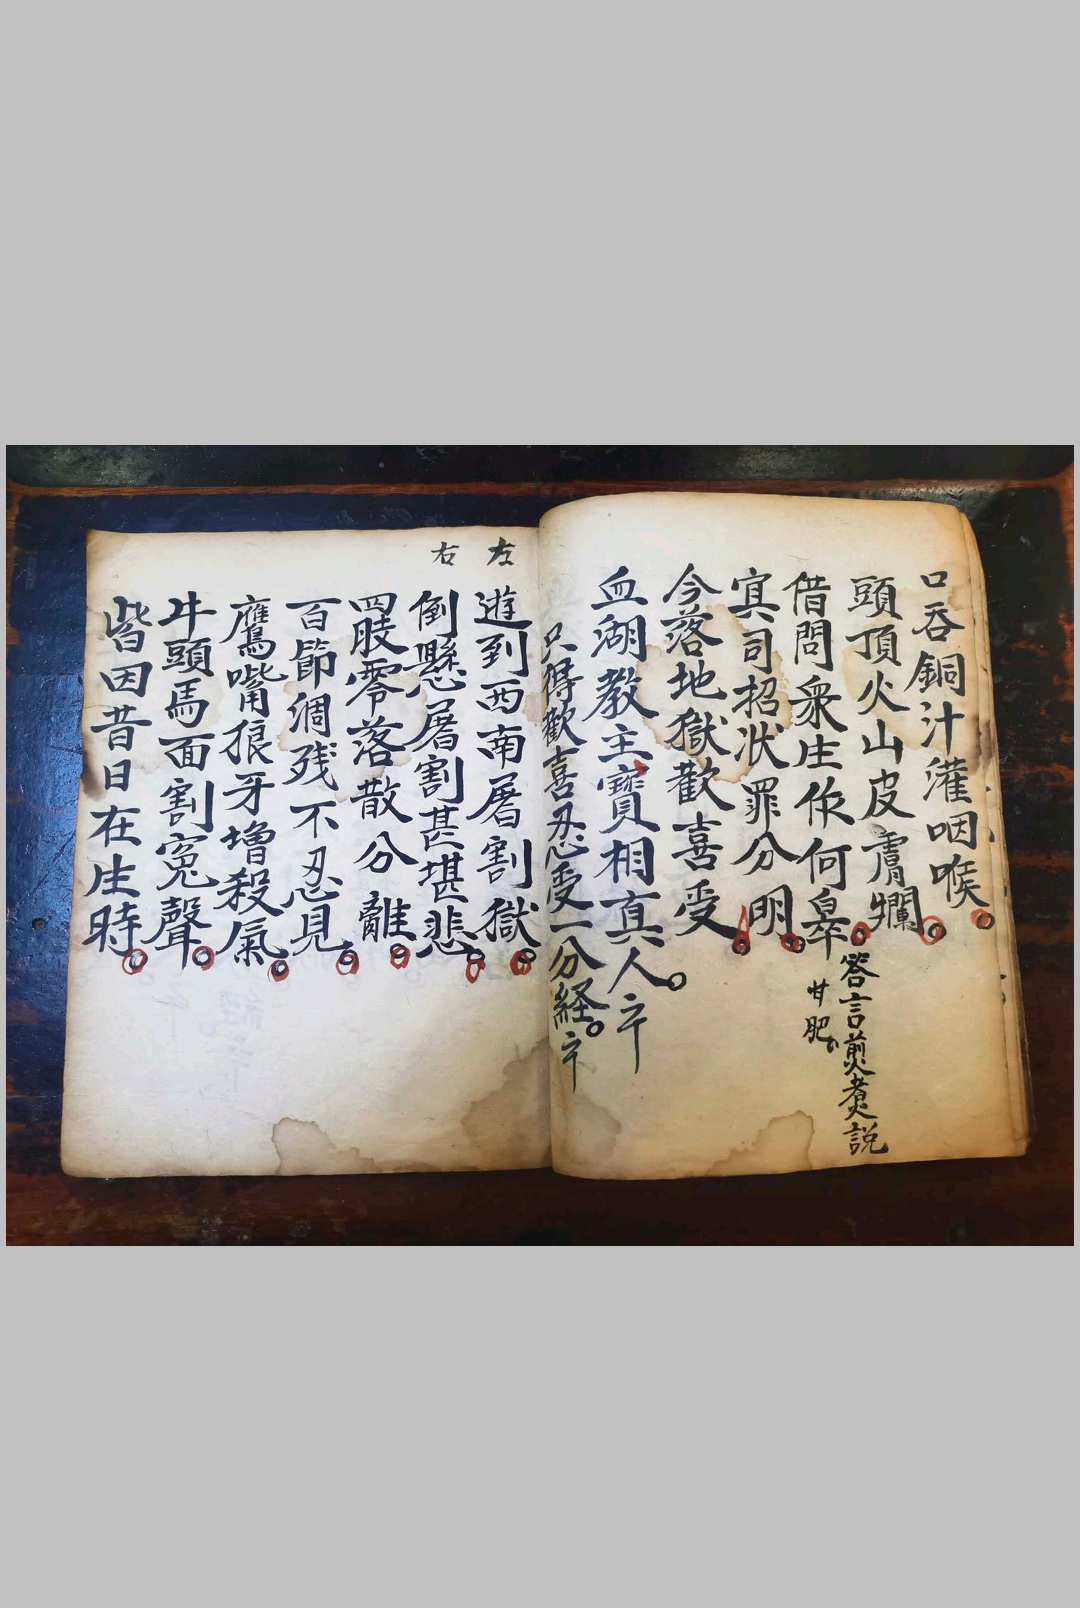 口吞銅汁灌咽喉
頭頂火山皮膚爛
借問衆生作何辠
答言煎煮説
甘肥
冥司招狀罪分明
今落地獄歡喜受
血湖教主寳相真人
只得歡喜忍受一分経
左
遊到西南屠割獄
右
倒懸屠割甚堪悲
四肢零落散分離
百節凋残不忍見
鷹嘴狼牙增殺氣
牛頭馬面割冤聲
皆因昔日在生時